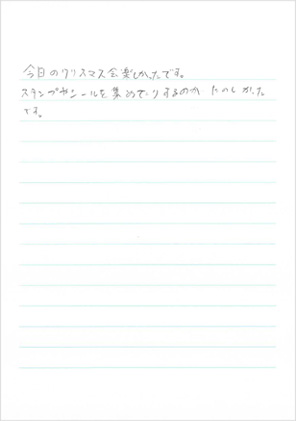 今日のクリスマス会楽しかったです。
スタンプやシールを集めたりするのが たのしかった
です。